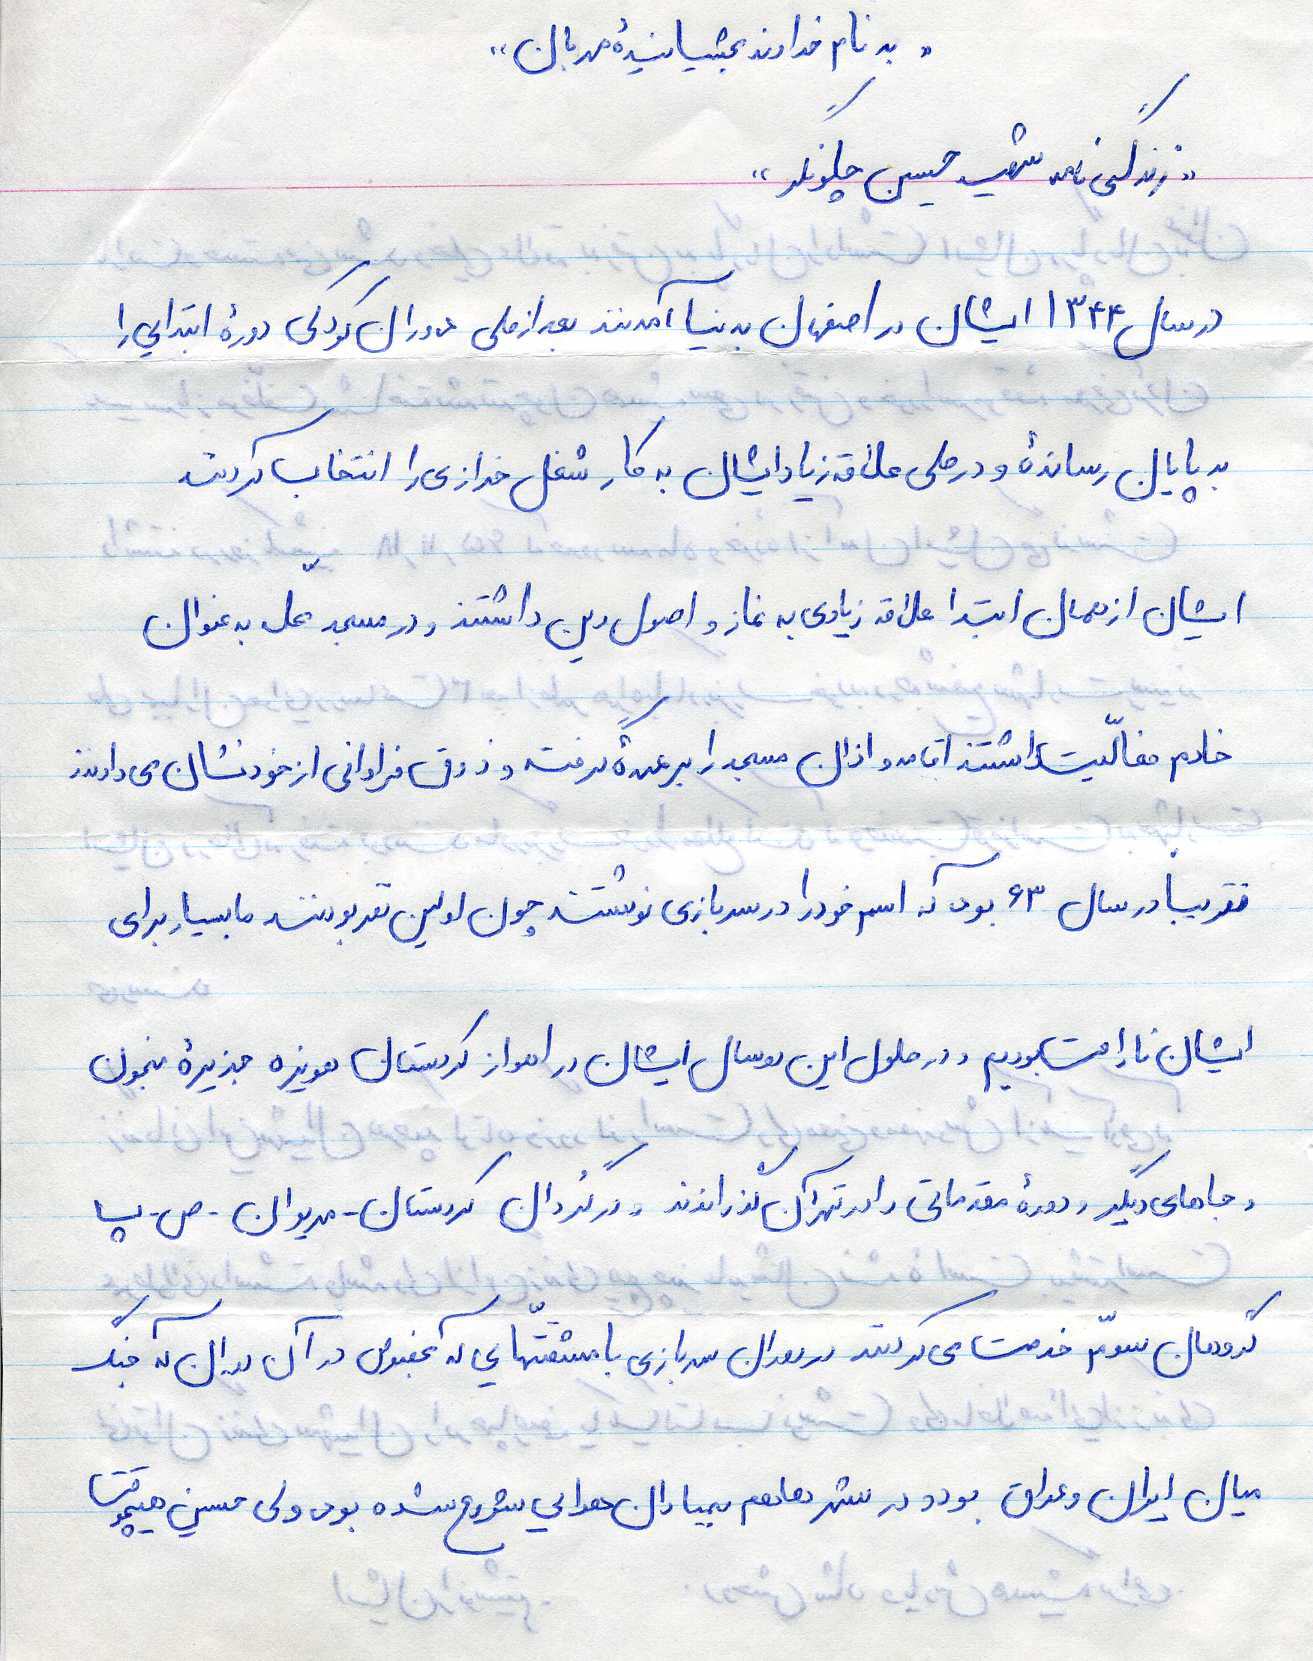 « به نام خداوند بخشاینیدهٔ مهربان »
« زندگی نامه شهید حسین چلونگر »
در سال ۱۳۴۴ ایشان در اصفهان به دنیا آمدند بعد از طی دوران کودکی دورهٔ ابتدایی را
به پایان رساندهٔ و در طی علاقه زیاد ایشان به کار شغل خرازی را انتخاب کردند
ایشان از همان ابتدا علاقه زیادی به نماز و اصول دین داشتند و در مسجد محل به عنوان
خادم فعالّیت داشتند اقامه و اذان مسجد را بر عهدهٔ گرفته و ذوق فراوانی از خود نشان می دادند
تقریباً در سال ۶۳ بود که اسم خود را در سربازی نوشتند چون اولین نفر بودند ما بسیار برای
ایشان ناراحت بودیم و در طول این دو سال ایشان در اهواز کردستان هویزه جزیرهٔ مجنون
و جاهای دیگر و دورهٔ مقدماتی را در تهران گذراندند و در گردان کردستان - مریوان - ص - پ
گروهان سوّم خدمت می کردند در دوران سربازی با مشقتّهایی که بخصوص در آن دوران که جنگ
میان ایران و عراق بود و در شهرها هم بمباران هوایی شروع شده بود ولی حسین هیچوقت